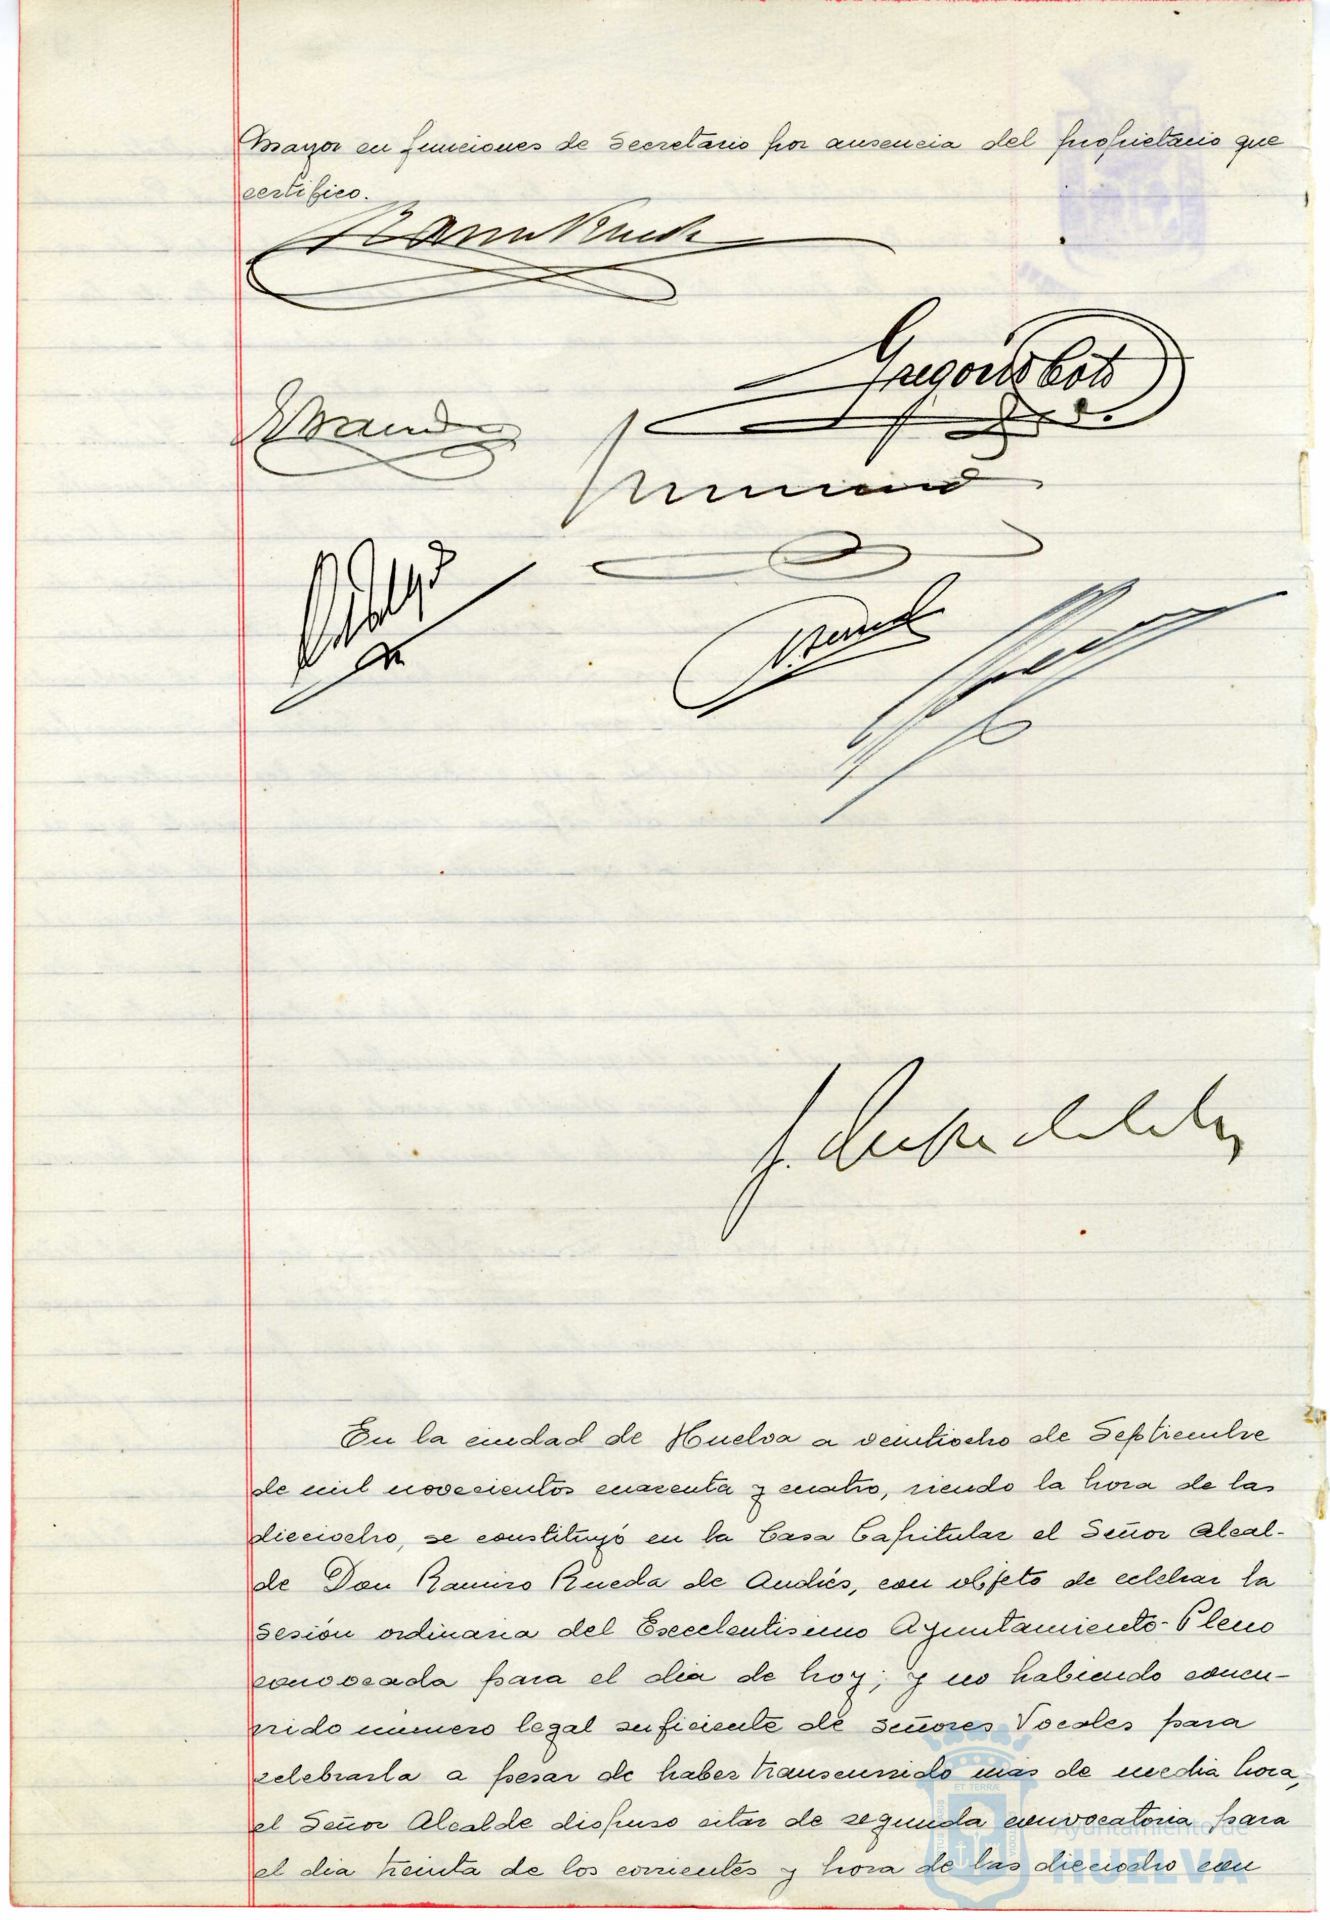 Mayor en funciones de Secretario por ausencia del propietario que
certifico.
Gregorio Coto
Hidalgo
En la ciudad de Huelva a veintiocho de Septiembre
de mil novecientos cuarenta y cuatro, siendo la hora de las
dieciocho, se constituyó en la Casa Capitular el Señor Alcal-
de Don Ramiro Rueda de Andrés, con objeto de celebrar la
sesión ordinaria del Excelentisimo Ayuntamiento-Pleno
convocada para el dia de hoy; y no habiendo concu-
rrido número legal suficiente de señores Vocales para
celebrarla a pesar de haber transcurrido más de media hora,
el Señor Alcalde dispuso citar de segunda convocatoria para
el dia treinta de los corrientes y hora de las dieciocho con
Ayuntamiento de
HUELVA